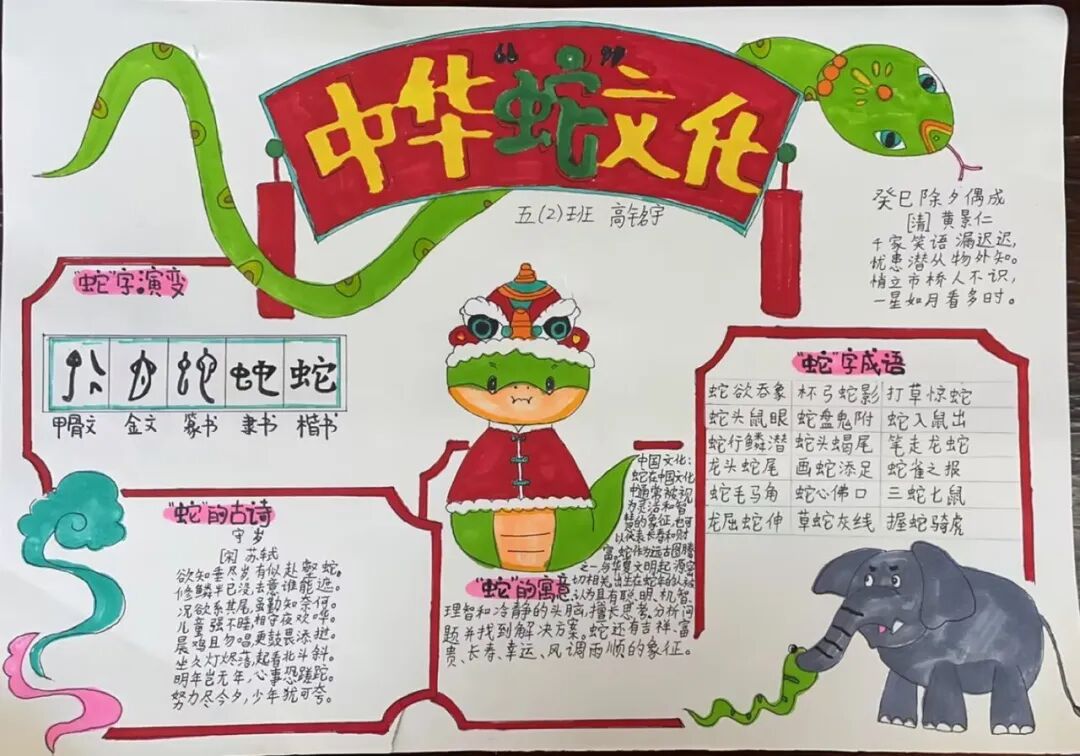 中华“蛇”文化
五(2)班 高铭宇
癸巳除夕偶成
[清] 黄景仁
千家笑语漏迟迟,
忧患潜从物外知。
悄立市桥人不识,
一星如月看多时。
“蛇”字演变
甲骨文 金文 篆书 隶书 楷书
“蛇”的古诗
守岁
[宋] 苏轼
欲知垂尽岁,有似赴壑蛇。
修鳞半已没,去意谁能遮。
况欲系其尾,虽勤知奈何。
儿童强不睡,相守夜欢哗。
晨鸡且勿唱,更鼓畏添挝。
坐久灯烬落,起看北斗斜。
明年岂无年,心事恐蹉跎。
努力尽今夕,少年犹可夸。
中国文化:
蛇在中国文化
中通常被视
为灵活和智
慧的象征,也可
以代表长寿和财
富。蛇作为远古图腾
之一,与华夏文明起源密
切相关,出生在蛇年的人被
认为具有聪明、机智、
“蛇”的寓意
理智和冷静的头脑,擅长思考、分析问
题并找到解决方案。蛇还有吉祥、富
贵、长寿、幸运、风调雨顺的象征。
“蛇”字成语
蛇欲吞象 杯弓蛇影 打草惊蛇
蛇头鼠眼 蛇盘鬼附 蛇入鼠出
蛇行鳞潜 蛇头蝎尾 笔走龙蛇
龙头蛇尾 画蛇添足 蛇雀之报
蛇毛马角 蛇心佛口 三蛇七鼠
龙屈蛇伸 草蛇灰线 握蛇骑虎